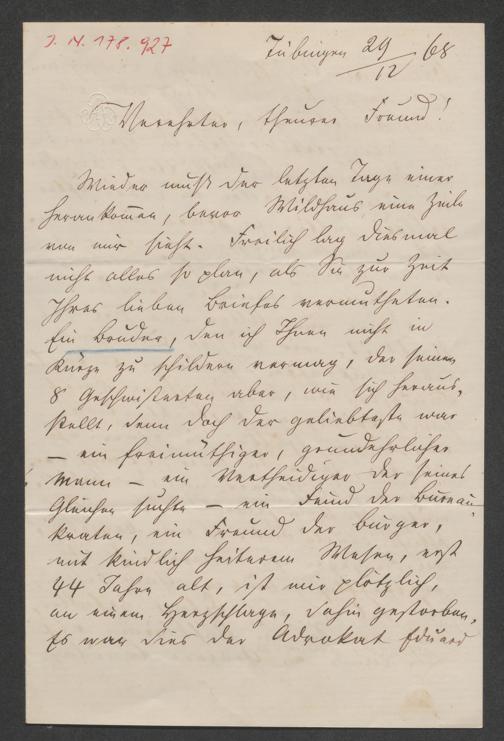 J. N. 178.927
Tübingen 29/12 68
Verehrter, theurer Freund!
Wieder muß der letzten Tage einer
herankom̅en, bevor Wildhaus eine Zeile
von mir sieht. Freilich lag diesmal
nicht alles so plan, als Sie zur Zeit
Ihres lieben Briefes vermutheten.
Ein Bruder, den ich Ihnen nicht in
Kürze zu schildern vermag, der seinen
8 Geschwisterten aber, wie sich heraus-
stellt, denn doch der geliebteste war
– ein freimüthiger, grundehrlicher
Mann – ein Vertheidiger der seines
Gleichen suchte – ein Feind der Bureau-
kraten, ein Freund der Bürger,
mit kindlich heiterem Wesen, erst
44 Jahre alt, ist mir plötzlich,
an einem Herzschlage, dahin gestorben.
Es war dies der Advokat Eduard